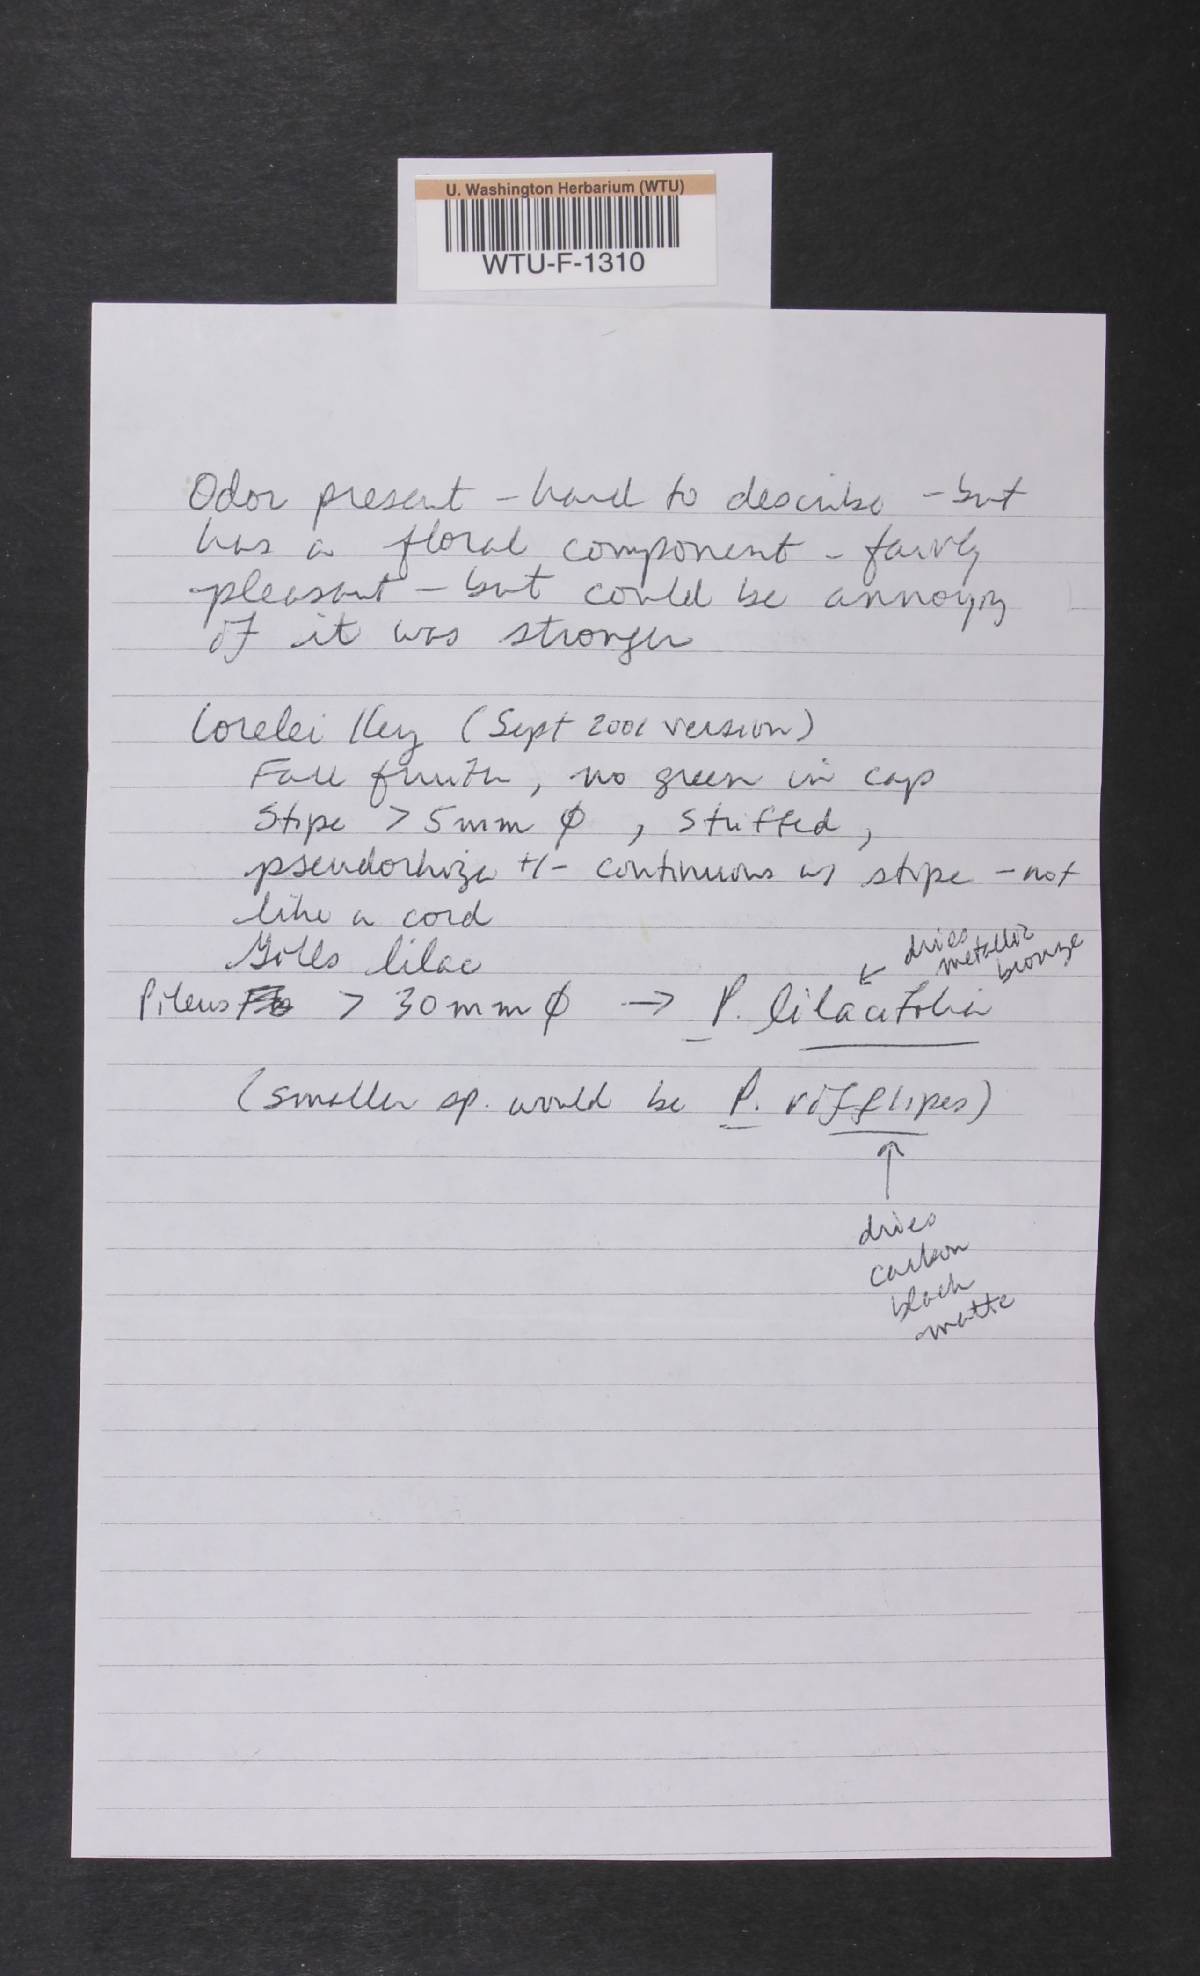 U. Washington Herbarium (WTU)
WTU-F-1310
Odor present - hard to describe - but
has a floral component - fairly
pleasant - but could be annoying
if it was stronger
Lorelei Key (Sept 2001 version)
Fall fruith, no green in cap
Stipe > 5mm φ, stuffed,
pseudorhiza +/- continuous w/ stipe - not
like a cord
Gills lilac
Pileus > 30mm φ → P. lilacifolia
← dries
metallic
bronze
(smaller sp. would be P. rufflipes)
↑
dries
carbon
black
matte